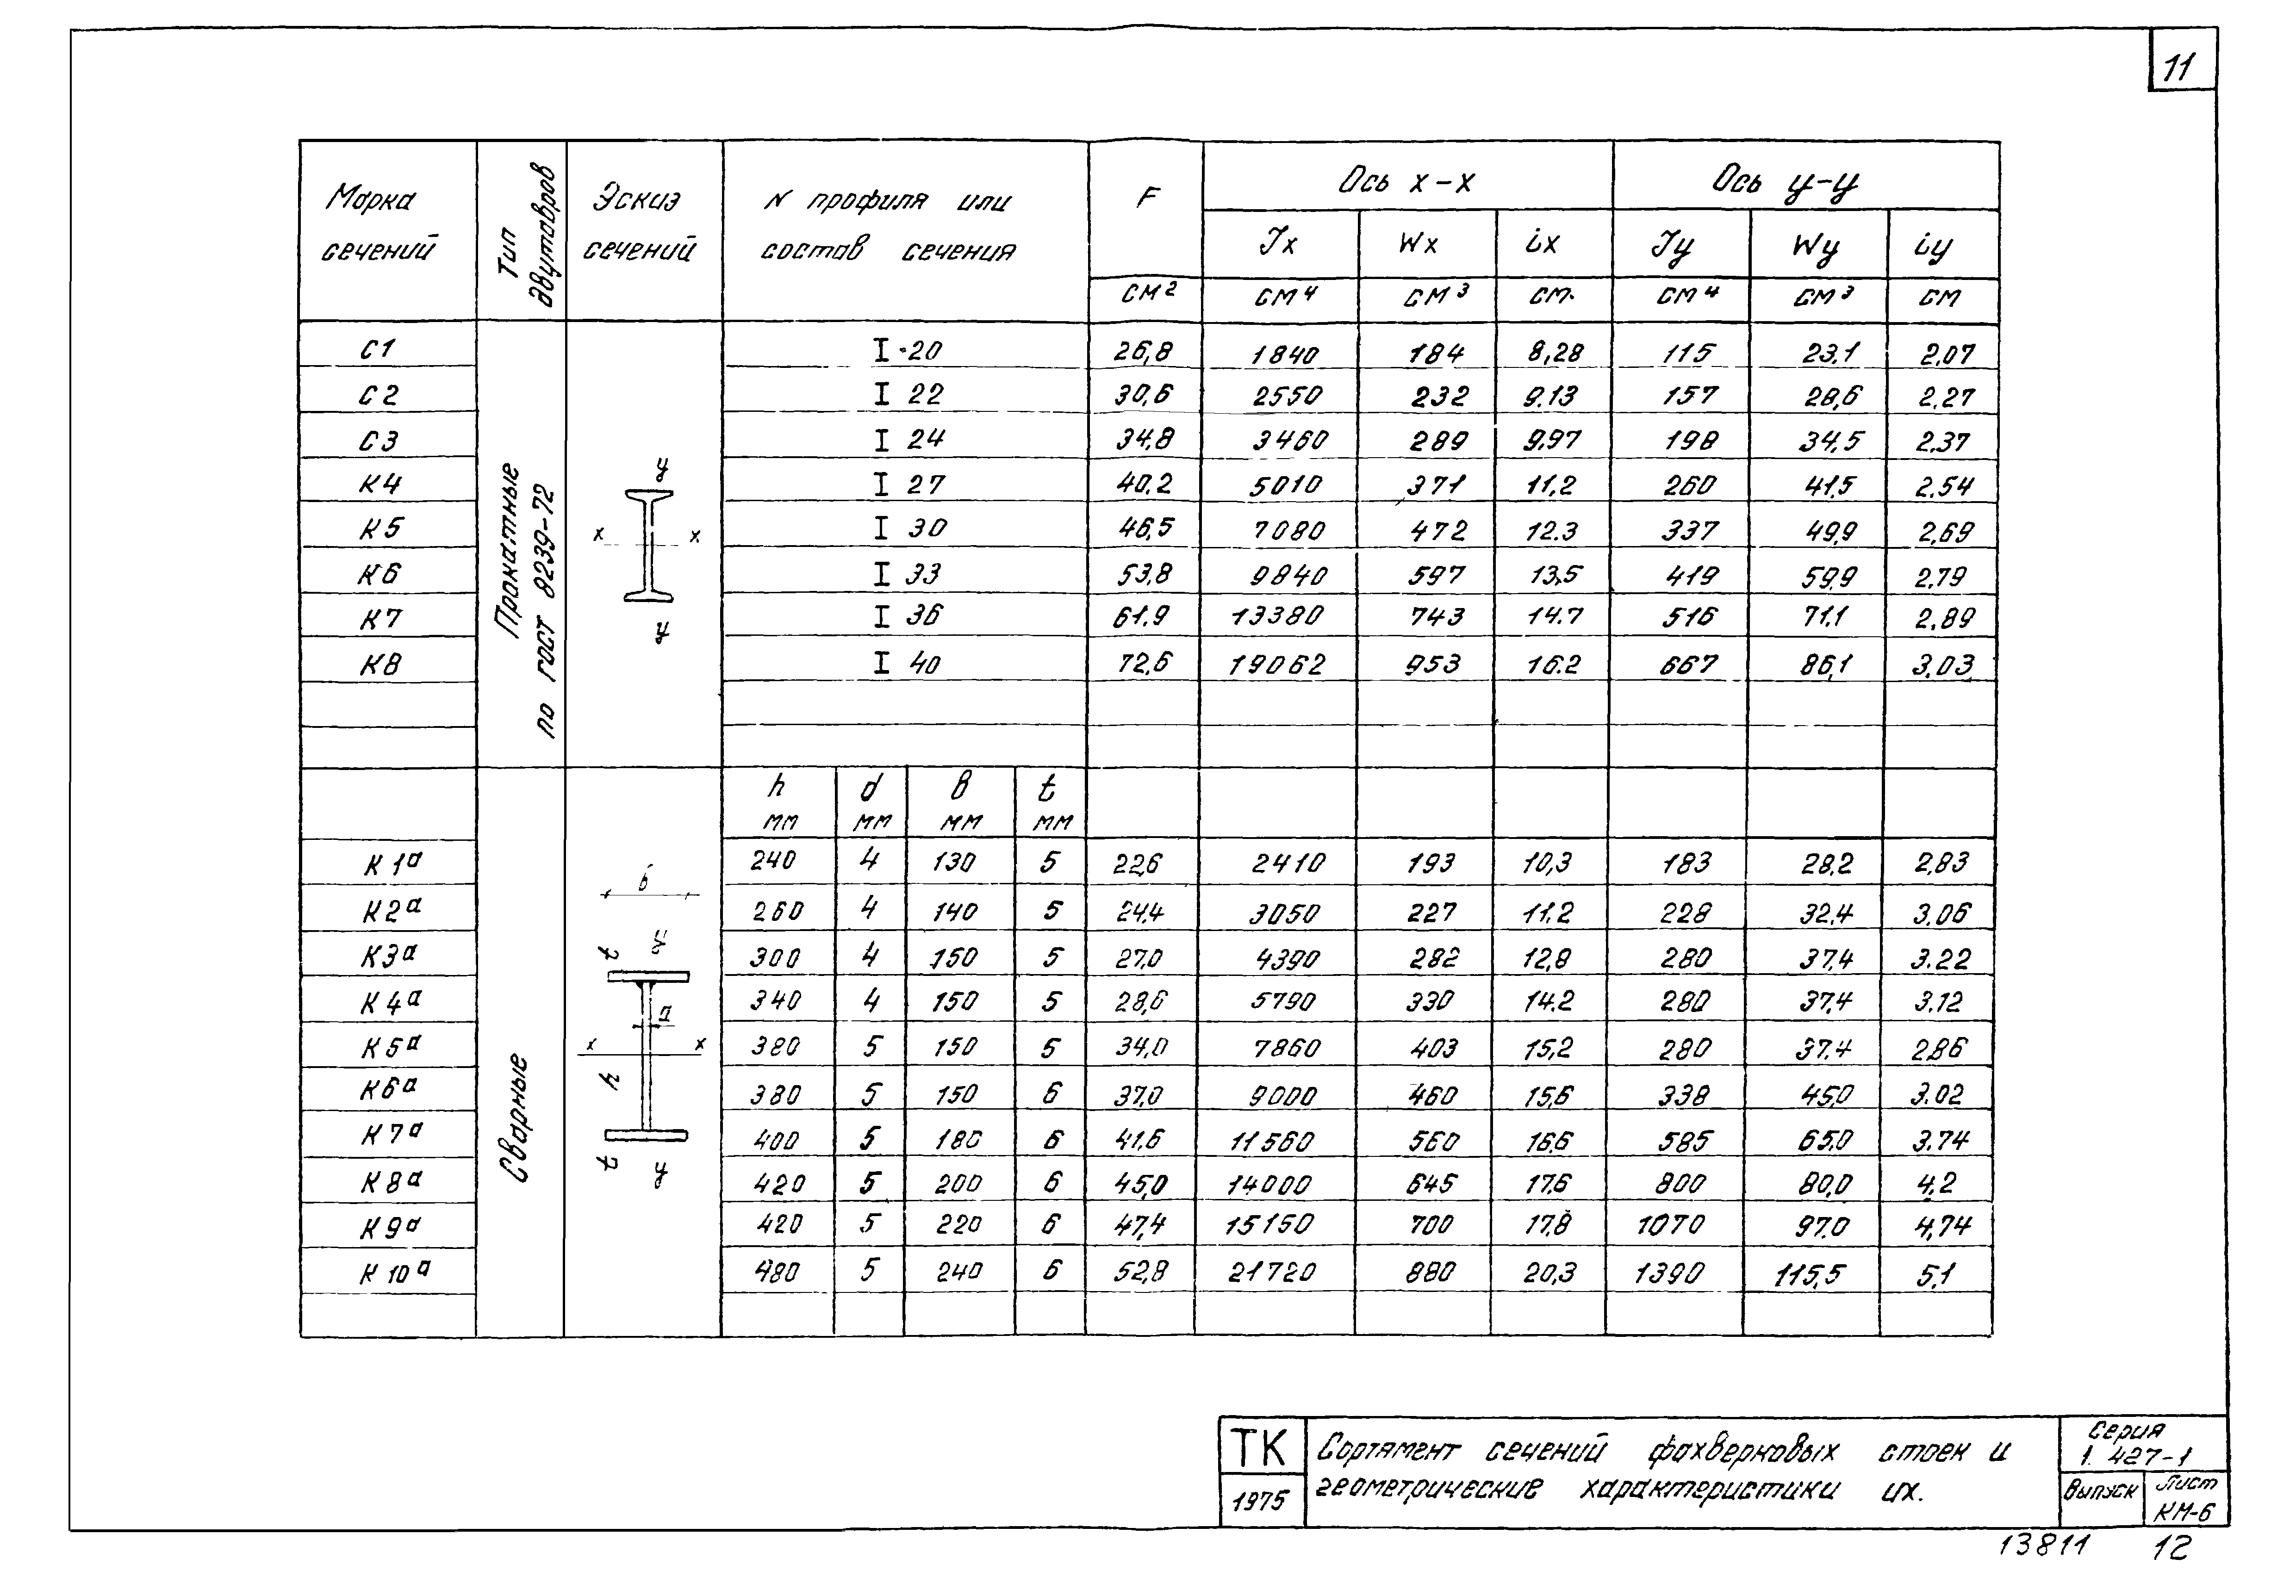 11
Марка сечений | Тип двутавров | Эскиз сечений | N профиля или состав сечения | F | Ось x-x | Ось y-y
Jx | Wx | ix | Jy | Wy | iy
см² | см⁴ | см³ | см. | см⁴ | см³ | см
Прокатные по ГОСТ 8239-72
y
x x
y
С1 | I 20 | 26,8 | 1840 | 184 | 8,28 | 115 | 23.1 | 2,07
С2 | I 22 | 30,6 | 2550 | 232 | 9.13 | 157 | 28,6 | 2.27
С3 | I 24 | 34,8 | 3460 | 289 | 9,97 | 198 | 34,5 | 2,37
К4 | I 27 | 40,2 | 5010 | 371 | 11,2 | 260 | 41,5 | 2.54
К5 | I 30 | 46,5 | 7080 | 472 | 12.3 | 337 | 49,9 | 2,69
К6 | I 33 | 53,8 | 9840 | 597 | 13,5 | 419 | 59,9 | 2,79
К7 | I 36 | 61.9 | 13380 | 743 | 14.7 | 516 | 71,1 | 2,89
К8 | I 40 | 72,6 | 19062 | 953 | 16.2 | 667 | 86,1 | 3,03
Сварные
h мм | d мм | в мм | t мм
б
t y
d
x x
h
t y
К1а | 240 | 4 | 130 | 5 | 22,6 | 2410 | 193 | 10,3 | 183 | 28,2 | 2,83
К2а | 260 | 4 | 140 | 5 | 24,4 | 3050 | 227 | 11.2 | 228 | 32.4 | 3.06
К3а | 300 | 4 | 150 | 5 | 27,0 | 4390 | 282 | 12,8 | 280 | 37,4 | 3.22
К4а | 340 | 4 | 150 | 5 | 28,6 | 5790 | 330 | 14.2 | 280 | 37,4 | 3,12
К5а | 380 | 5 | 150 | 5 | 34,0 | 7860 | 403 | 15,2 | 280 | 37.4 | 2,86
К6а | 380 | 5 | 150 | 6 | 37,0 | 9000 | 460 | 15,6 | 338 | 45,0 | 3.02
К7а | 400 | 5 | 180 | 6 | 41.6 | 11560 | 560 | 16,6 | 585 | 65,0 | 3.74
К8а | 420 | 5 | 200 | 6 | 45,0 | 14000 | 645 | 17,6 | 800 | 80,0 | 4,2
К9а | 420 | 5 | 220 | 6 | 47,4 | 15150 | 700 | 17,8 | 1070 | 97.0 | 4,74
К10а | 480 | 5 | 240 | 6 | 52,8 | 21720 | 880 | 20,3 | 1390 | 115,5 | 5,1
ТК
1975
Сортамент сечений фахверковых стоек и
геометрические характеристики их.
Серия
1.427-1
Выпуск
Лист
КМ-6
13811 12